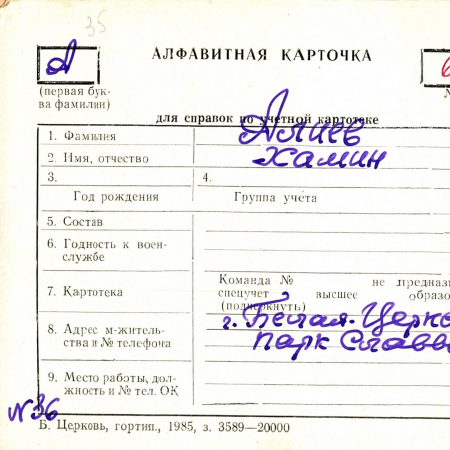 35
А
АЛФАВИТНАЯ КАРТОЧКА
(первая бук-
ва фамилии)
для справок по учетной картотеке
1. Фамилия Алиев
2. Имя, отчество Хамин
3. 4.
Год рождения Группа учета
5. Состав
6. Годность к воен-
службе
Команда № не предназ
7. Картотека спецучет высшее образо
(подчеркнуть)
8. Адрес м-житель-
ства и № телефона
г. Белая. Церко
парк Слав
9. Место работы, дол-
жность и № тел. ОК
N 36
Б. Церковь, гортип., 1985, з. 3589—20000